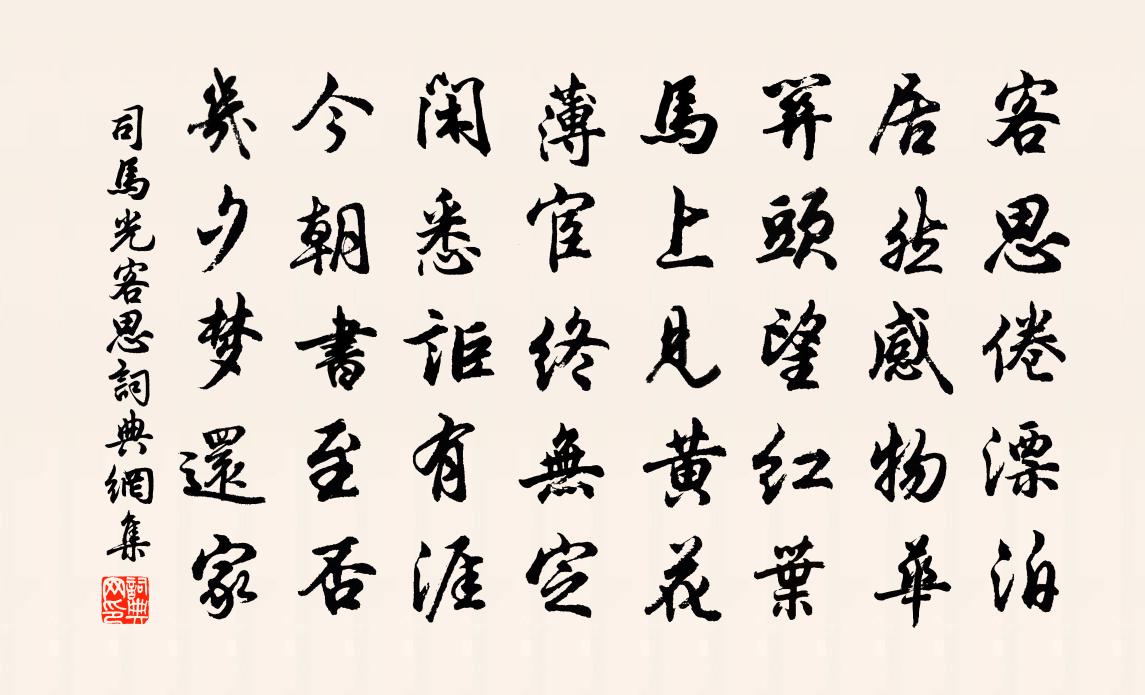 客思倦漂泊
居然感物華
筭頭望红葉
馬上見黄花
薄宦终無定
閑悉詎有涯
今朝書至否
幾夕梦還家
司馬光客思詞典網集
詞典网印